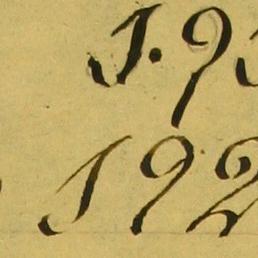 1.93
192